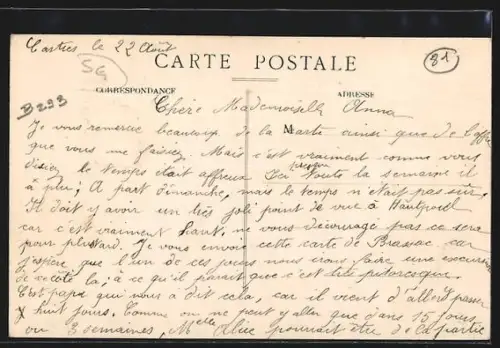 Castres le 22 Août
56
81
CARTE POSTALE
CORRESPONDANCE
ADRESSE
B293
Chère Mademoiselle Anna
Je vous remercie beaucoup de la carte ainsi que de l'offre
que vous me faisiez. Mais c'est vraiment comme vous
disiez le temps était affreux. Ici presque toute la semaine il
à plu; A part dimanche, mais le temps n'était pas sûr.
Il doit y avoir un très joli point de vue à Hautpoul
car c'est vraiment haut, ne vous découragé pas ce sera
pour plustard. Je vous envoie cette carte de Brassac car
j'espère que l'un de ces jours nous irons faire une excursion
de ce côté la; à ce qu'il parait que c'est très pitoresque.
C'est papa qui nous a dit cela, car il vient d'aller passer
huit jours. Comme on ne peut y aller que dans 15 jours
ou 3 semaines, Melle Alice pourrait être de la partie